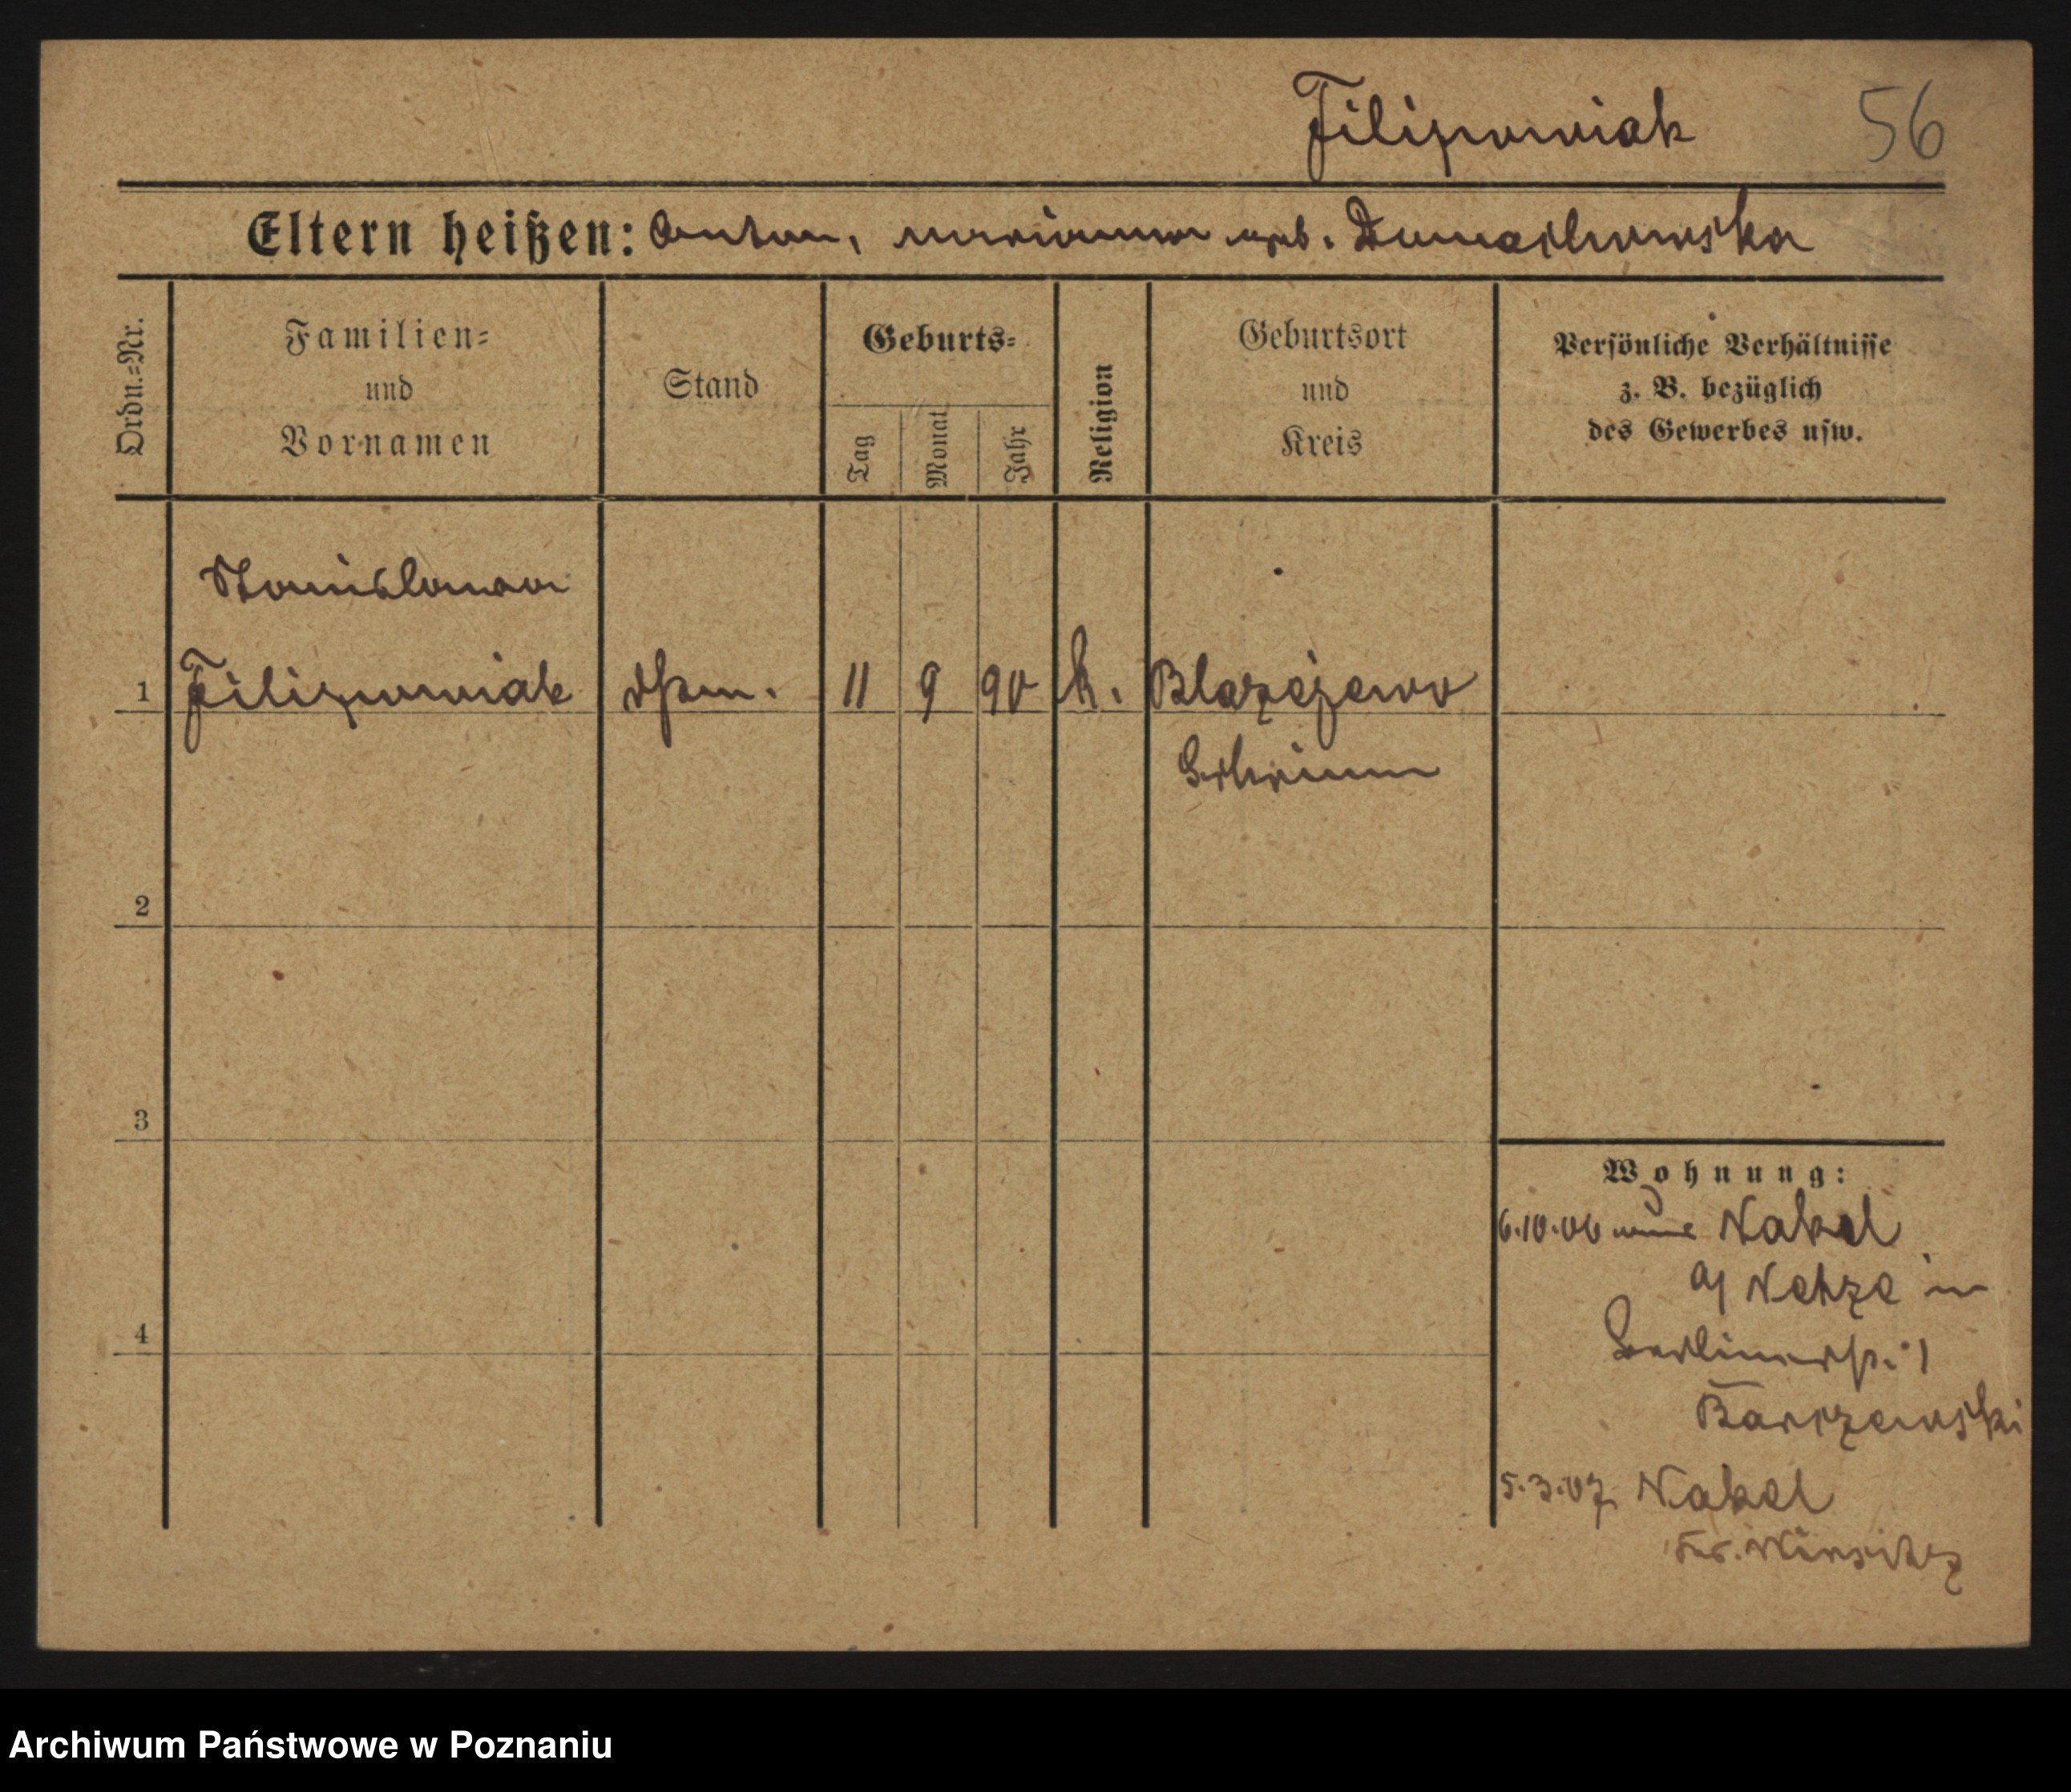 Filipowiak 56
Eltern heißen: Anton, Marianna geb. Domachowska
Ordn.-Nr.
Familien-
und
Vornamen
Stand
Geburts-
Tag
Monat
Jahr
Religion
Geburtsort
und
Kreis
Persönliche Verhältnisse
z. B. bezüglich
des Gewerbes usw.
Stanislawa
1 Filipowiak 11 9 90 k. Blazejewo
Schrimm
2
3
4
Wohnung:
6.10.06 Nakel
a/ Netze in
Berlinerstr. 1
Barczewski
5.3.07 Nakel
Kr. Wirsitz
Archiwum Państwowe w Poznaniu